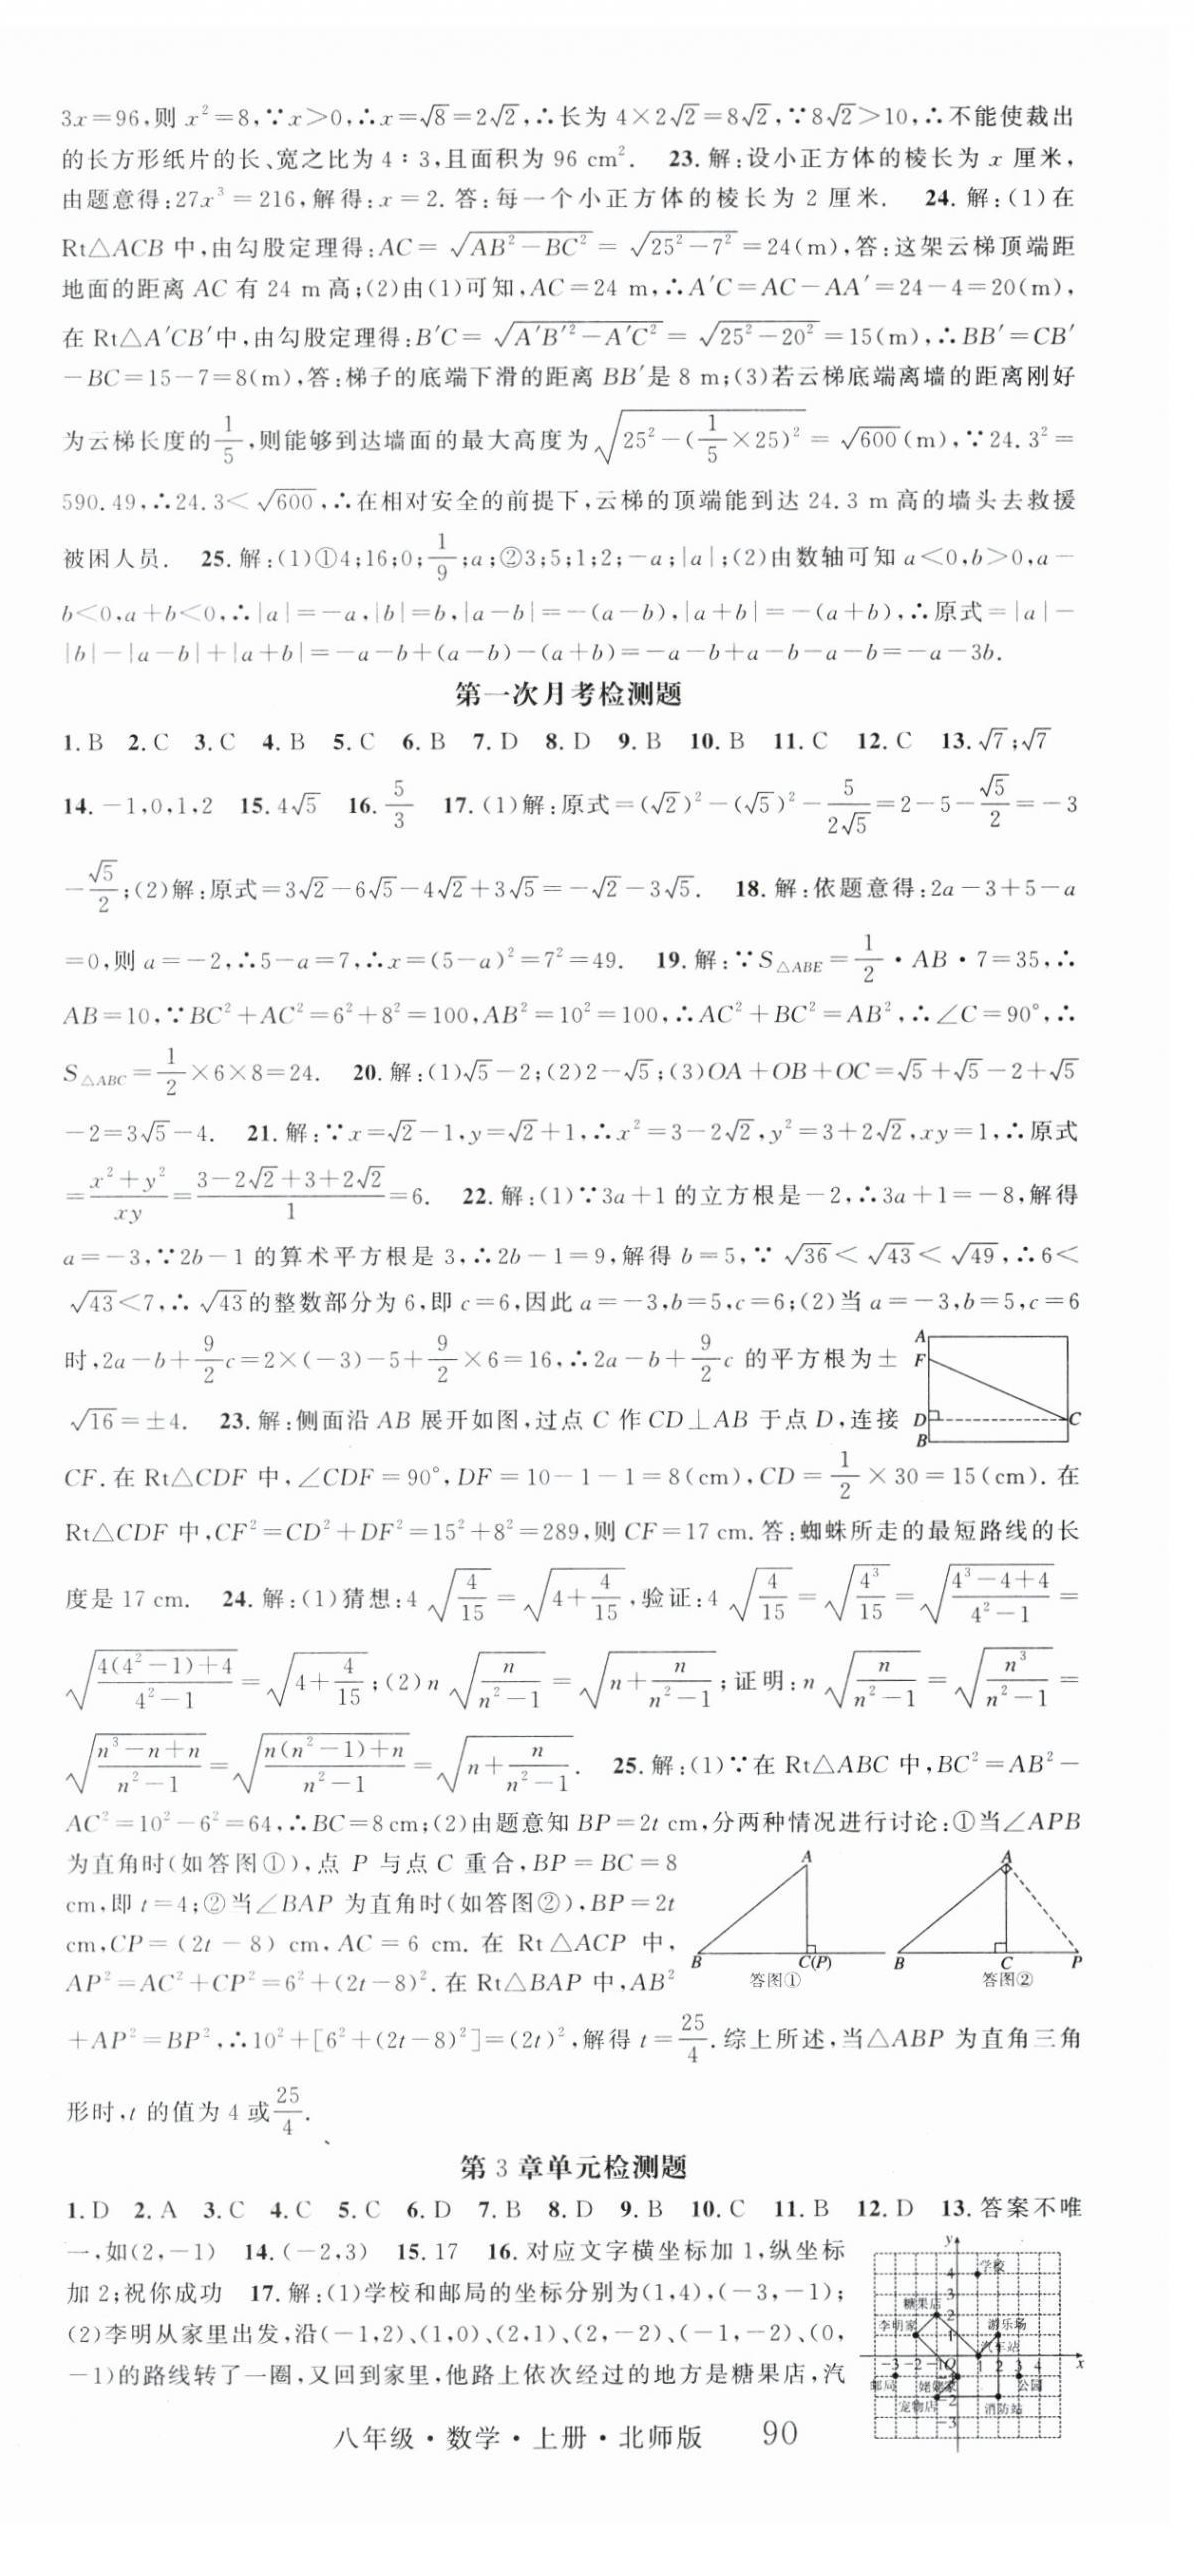 3x=96,则 x²=8,∵x>0,∴x=√8=2√2,∴长为 4×2√2=8√2,∵8√2>10,∴不能使裁出
的长方形纸片的长、宽之比为 4∶3,且面积为 96 cm². 23.解:设小正方体的棱长为 x 厘米,
由题意得:27x³=216,解得:x=2.答:每一个小正方体的棱长为 2 厘米. 24.解:(1)在
Rt△ACB 中,由勾股定理得:AC=√(AB²-BC²)=√(25²-7²)=24(m),答:这架云梯顶端距
地面的距离 AC 有 24 m高;(2)由(1)可知,AC=24 m,∴A′C=AC-AA′=24-4=20(m),
在 Rt△A′CB′中,由勾股定理得:B′C=√(A′B′²-A′C²)=√(25²-20²)=15(m),∴BB′=CB′
-BC=15-7=8(m),答:梯子的底端下滑的距离 BB′是 8 m;(3)若云梯底端离墙的距离刚好
为云梯长度的1/5,则能够到达墙面的最大高度为√(25²-(1/5×25)²)=√600(m),∵24.3²=
590.49,∴24.3<√600,∴在相对安全的前提下,云梯的顶端能到达 24.3 m 高的墙头去救援
被困人员. 25.解:(1)①4;16;0;1/9;a;②3;5;1;2;-a;|a|;(2)由数轴可知 a<0,b>0,a-
b<0,a+b<0,∴|a|=-a,|b|=b,|a-b|=-(a-b),|a+b|=-(a+b),∴原式=|a|-
|b|-|a-b|+|a+b|=-a-b+(a-b)-(a+b)=-a-b+a-b-a-b=-a-3b.
第一次月考检测题
1.B 2.C 3.C 4.B 5.C 6.B 7.D 8.D 9.B 10.B 11.C 12.C 13.√7;√7
14.-1,0,1,2 15.4√5 16.5/3 17.(1)解:原式=(√2)²-(√5)²-5/(2√5)=2-5-√5/2=-3
-√5/2;(2)解:原式=3√2-6√5-4√2+3√5=-√2-3√5. 18.解:依题意得:2a-3+5-a
=0,则 a=-2,∴5-a=7,∴x=(5-a)²=7²=49. 19.解:∵S△ABE=1/2·AB·7=35,∴
AB=10,∵BC²+AC²=6²+8²=100,AB²=10²=100,∴AC²+BC²=AB²,∴∠C=90°,∴
S△ABC=1/2×6×8=24. 20.解:(1)√5-2;(2)2-√5;(3)OA+OB+OC=√5+√5-2+√5
-2=3√5-4. 21.解:∵x=√2-1,y=√2+1,∴x²=3-2√2,y²=3+2√2,xy=1,∴原式
=(x²+y²)/xy=(3-2√2+3+2√2)/1=6. 22.解:(1)∵3a+1的立方根是-2,∴3a+1=-8,解得
a=-3,∵2b-1的算术平方根是 3,∴2b-1=9,解得 b=5,∵√36<√43<√49,∴6<
√43<7,∴√43的整数部分为 6,即 c=6,因此 a=-3,b=5,c=6;(2)当 a=-3,b=5,c=6
时,2a-b+9/2c=2×(-3)-5+9/2×6=16,∴2a-b+9/2c 的平方根为±
√16=±4. 23.解:侧面沿 AB 展开如图,过点 C 作 CD⊥AB 于点 D,连接
A
F
D
C
B
CF.在 Rt△CDF 中,∠CDF=90°,DF=10-1-1=8(cm),CD=1/2×30=15(cm).在
Rt△CDF 中,CF²=CD²+DF²=15²+8²=289,则 CF=17 cm.答:蜘蛛所走的最短路线的长
度是 17 cm. 24.解:(1)猜想:4√(4/15)=√(4+4/15),验证:4√(4/15)=√(4³/15)=√((4³-4+4)/(4²-1))=
√((4(4²-1)+4)/(4²-1))=√(4+4/15);(2)n√(n/(n²-1))=√(n+n/(n²-1));证明:n√(n/(n²-1))=√(n³/(n²-1))=
√((n³-n+n)/(n²-1))=√((n(n²-1)+n)/(n²-1))=√(n+n/(n²-1)). 25.解:(1)∵在 Rt△ABC 中,BC²=AB²-
AC²=10²-6²=64,∴BC=8 cm;(2)由题意知 BP=2t cm,分两种情况进行讨论:①当∠APB
为直角时(如答图①),点 P 与点 C 重合,BP=BC=8
cm,即 t=4;②当∠BAP 为直角时(如答图②),BP=2t
cm,CP=(2t-8) cm,AC=6 cm.在 Rt△ACP 中,
AP²=AC²+CP²=6²+(2t-8)².在 Rt△BAP 中,AB²
A
B
C(P)
答图①
A
B
C
P
答图②
+AP²=BP²,∴10²+[6²+(2t-8)²]=(2t)²,解得 t=25/4.综上所述,当△ABP 为直角三角
形时,t 的值为 4 或25/4.
第 3 章单元检测题
1.D 2.A 3.C 4.C 5.C 6.D 7.B 8.D 9.B 10.C 11.B 12.D 13.答案不唯
一,如(2,-1) 14.(-2,3) 15.17 16.对应文字横坐标加 1,纵坐标
加 2;祝你成功 17.解:(1)学校和邮局的坐标分别为(1,4),(-3,-1);
(2)李明从家里出发,沿(-1,2)、(1,0)、(2,1)、(2,-2)、(-1,-2)、(0,
-1)的路线转了一圈,又回到家里,他路上依次经过的地方是糖果店,汽
y
学校
4
3
糖果店
2
李明家
1
游乐场
汽车站
-3 -2 -1 O 1 2 3 4 x
邮局
姥姥家
公园
-2
宠物店
消防站
-3
八年级·数学·上册·北师版 90